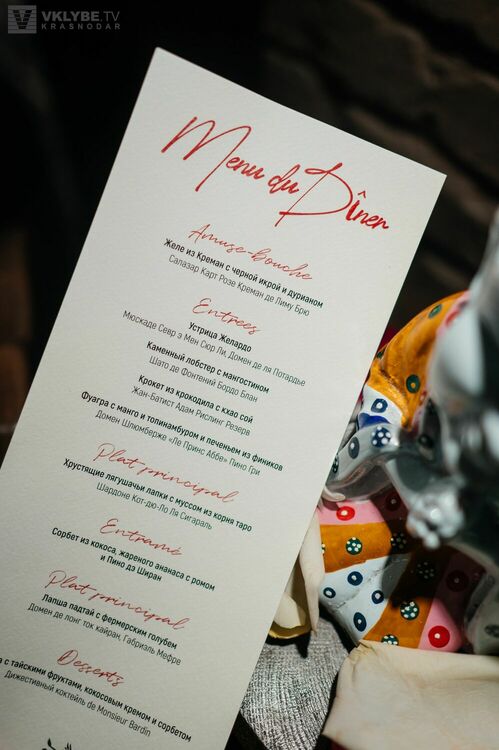 VKLYBE.TV
KRASNODAR
Menu du Dîner
Amuse-bouche
Желе из Креман с черной икрой и дурианом
Салазар Карт Розе Креман де Лиму Брю
Entrees
Устрица Желардо
Мюскаде Севр э Мен Сюр Ли, Домен де ля Потардье
Каменный лобстер с мангостином
Шато де Фонтений Бордо Блан
Крокет из крокодила с кхао сой
Жан-Батист Адам Рислинг Резерв
Фуагра с манго и топинамбуром и печеньем из фиников
Домен Шлюмберже «Ле Принс Аббе» Пино Гри
Plat principal
Хрустящие лягушачьи лапки с муссом из корня таро
Шардоне Кот-дю-Ло Ля Сигараль
Entramé
Сорбет из кокоса, жареного ананаса с ромом
и Пино дэ Ширан
Plat principal
Лапша падтай с фермерским голубем
Домен де лонг ток кайран, Габриэль Мефре
Desserts
с тайскими фруктами, кокосовым кремом и сорбетом
Дижестивный коктейль de Monsieur Bardin